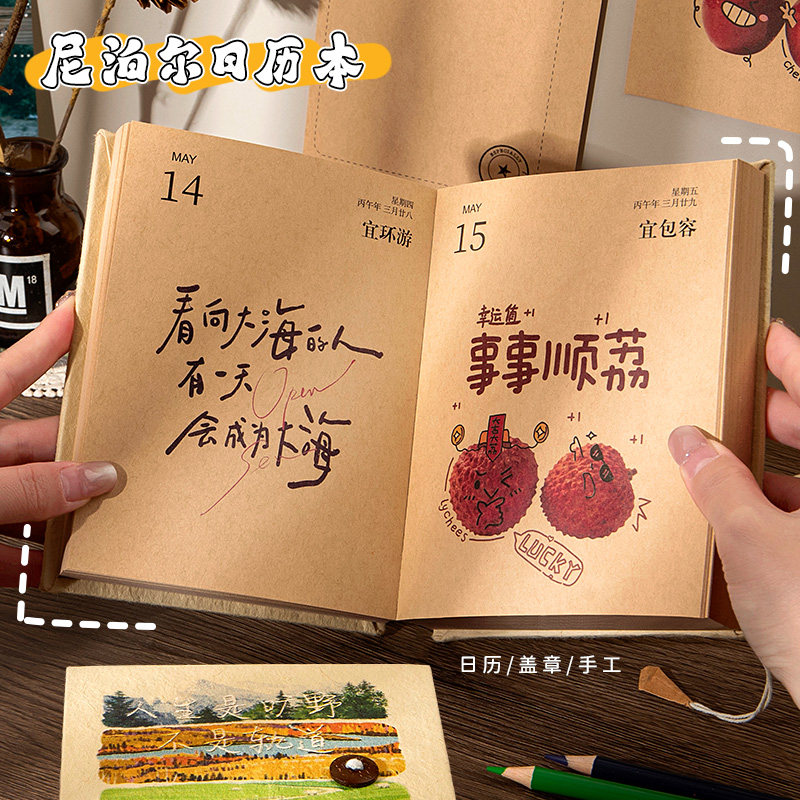 尼泊尔日历本
MAY
14
星期四
丙午年 三月廿八
宜环游
看向大海的人
有一天
Open
会成为大海
Sea
MAY
15
星期五
丙午年 三月廿九
宜包容
幸运值 +1
+1
事事顺荔
+1
+1
+1
大吉大荔
lychees
LUCKY
M
18
日历/盖章/手工
人生是旷野
不是轨道